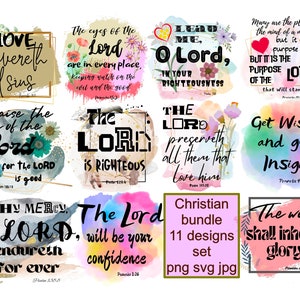 LOVE
covereth
sins
The eyes of the
Lord
are in every place,
keeping watch on the
evil and the good
Proverbs 15:3
LEAD
ME,
O Lord,
IN YOUR
RIGHTEOUSNESS
Many are the p
the mind of a
but is
purpose
BUT IT IS THE
PURPOSE
OF THE
LORD
that will stan
aise
of the
ord
for the LORD
is good
THE
LORD
IS RIGHTEOUS
THE
LORD
preserveth
all them that
love him
Get Wis
and ge
Insig
HY MERCY,
LORD,
endureth
for ever
The Lord
will be your
confidence
Proverbs 3:26
Christian
bundle
11 designs
set
png svg jpg
The me
shall inhe
glory